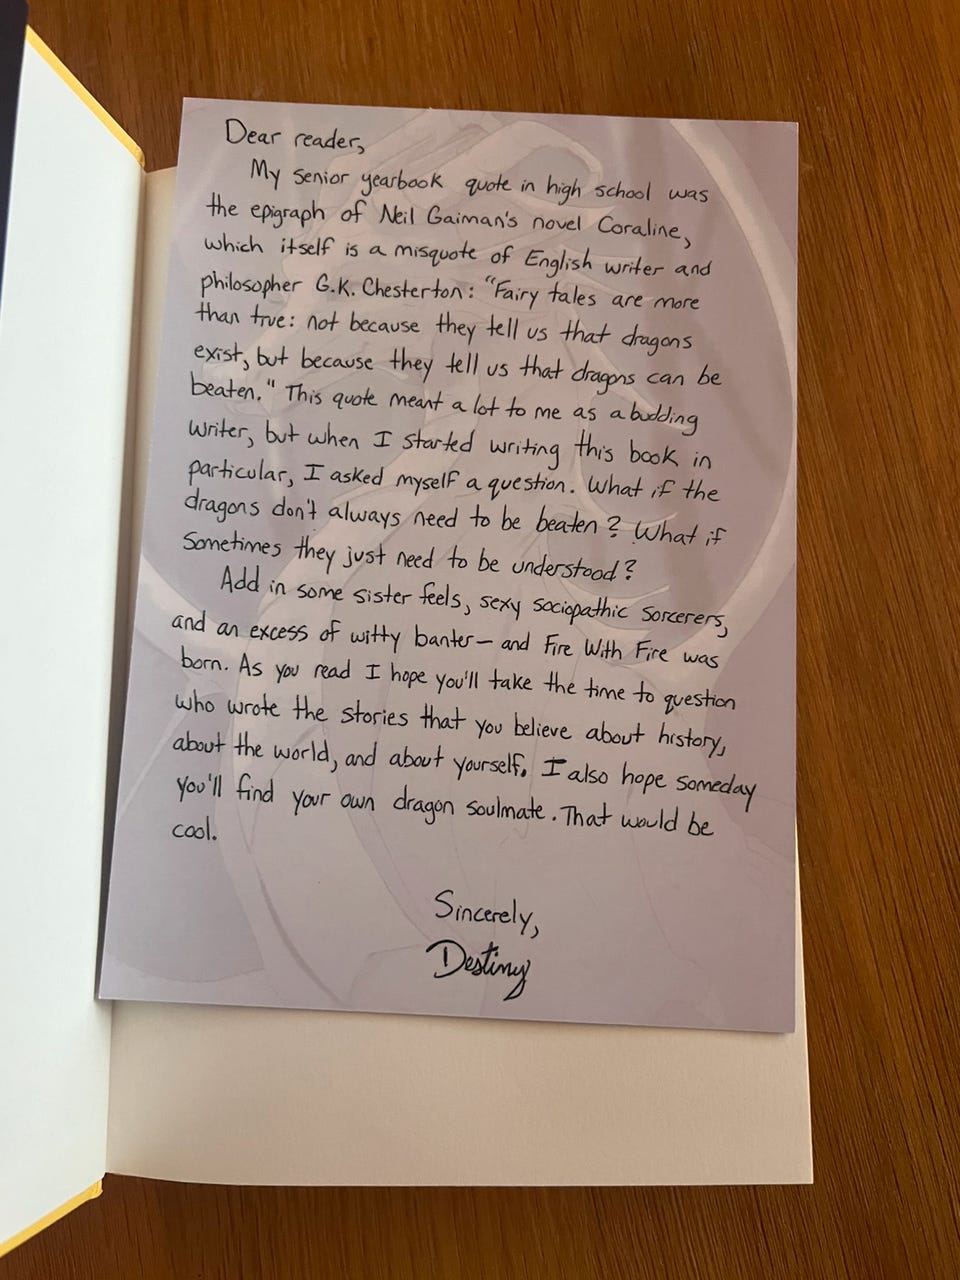 Dear reader,
My senior yearbook quote in high school was
the epigraph of Neil Gaiman's novel Coraline,
which itself is a misquote of English writer and
philosopher G.K. Chesterton: "Fairy tales are more
than true: not because they tell us that dragons
exist, but because they tell us that dragons can be
beaten." This quote meant a lot to me as a budding
writer, but when I started writing this book in
particular, I asked myself a question. What if the
dragons don't always need to be beaten? What if
sometimes they just need to be understood?
Add in some sister feels, sexy sociopathic sorcerers,
and an excess of witty banter- and Fire With Fire was
born. As you read I hope you'll take the time to question
who wrote the stories that you believe about history,
about the world, and about yourself. I also hope someday
you'll find your own dragon soulmate. That would be
cool.
Sincerely,
Destiny